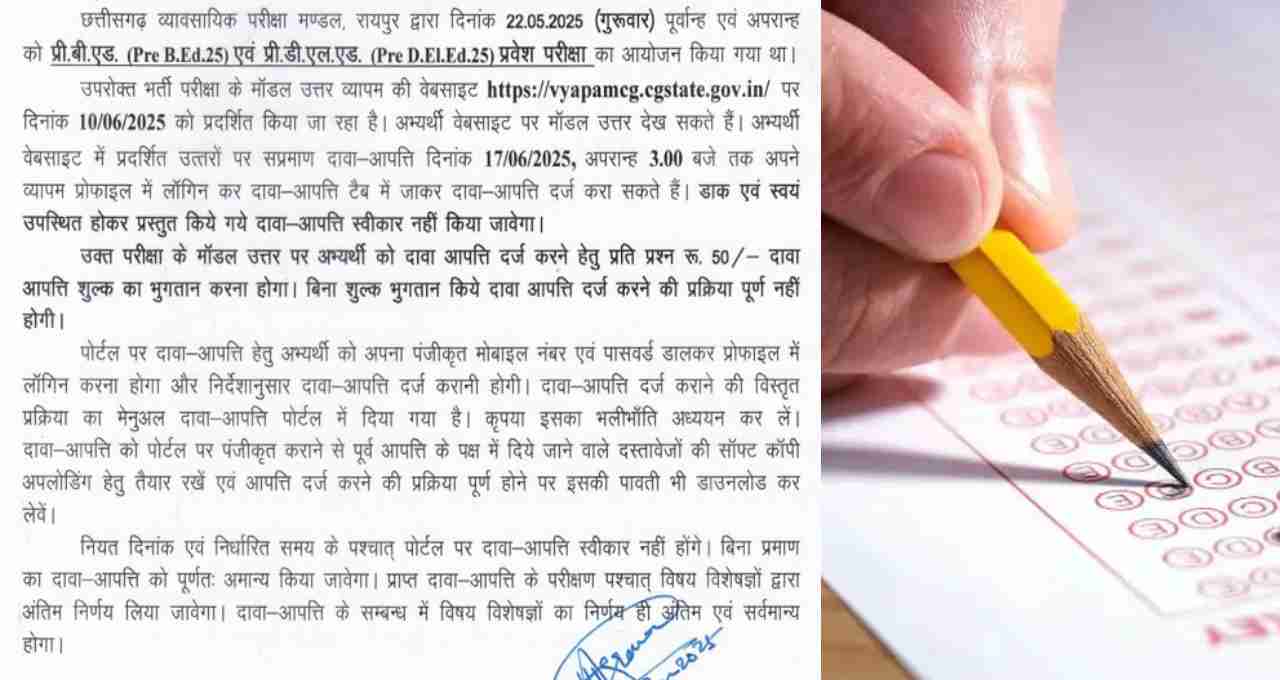 छत्तीसगढ़ व्यावसायिक परीक्षा मण्डल, रायपुर द्वारा दिनांक 22.05.2025 (गुरूवार) पूर्वान्ह एवं अपरान्ह
को प्री.बी.एड. (Pre B.Ed.25) एवं प्री.डी.एल.एड. (Pre D.El.Ed.25) प्रवेश परीक्षा का आयोजन किया गया था।
उपरोक्त भर्ती परीक्षा के मॉडल उत्तर व्यापम की वेबसाइट https://vyapamcg.cgstate.gov.in/ पर
दिनांक 10/06/2025 को प्रदर्शित किया जा रहा है। अभ्यर्थी वेबसाइट पर मॉडल उत्तर देख सकते हैं। अभ्यर्थी
वेबसाइट में प्रदर्शित उत्तरों पर सप्रमाण दावा–आपत्ति दिनांक 17/06/2025, अपरान्ह 3.00 बजे तक अपने
व्यापम प्रोफाइल में लॉगिन कर दावा–आपत्ति टैब में जाकर दावा–आपत्ति दर्ज करा सकते हैं। डाक एवं स्वयं
उपस्थित होकर प्रस्तुत किये गये दावा–आपत्ति स्वीकार नहीं किया जावेगा।
उक्त परीक्षा के मॉडल उत्तर पर अभ्यर्थी को दावा आपत्ति दर्ज करने हेतु प्रति प्रश्न रू. 50/– दावा
आपत्ति शुल्क का भुगतान करना होगा। बिना शुल्क भुगतान किये दावा आपत्ति दर्ज करने की प्रक्रिया पूर्ण नहीं
होगी।
पोर्टल पर दावा–आपत्ति हेतु अभ्यर्थी को अपना पंजीकृत मोबाइल नंबर एवं पासवर्ड डालकर प्रोफाइल में
लॉगिन करना होगा और निर्देशानुसार दावा–आपत्ति दर्ज करानी होगी। दावा–आपत्ति दर्ज कराने की विस्तृत
प्रक्रिया का मेनुअल दावा–आपत्ति पोर्टल में दिया गया है। कृपया इसका भलीभाँति अध्ययन कर लें।
दावा–आपत्ति को पोर्टल पर पंजीकृत कराने से पूर्व आपत्ति के पक्ष में दिये जाने वाले दस्तावेजों की सॉफ्ट कॉपी
अपलोडिंग हेतु तैयार रखें एवं आपत्ति दर्ज करने की प्रक्रिया पूर्ण होने पर इसकी पावती भी डाउनलोड कर
लेवें।
नियत दिनांक एवं निर्धारित समय के पश्चात् पोर्टल पर दावा–आपत्ति स्वीकार नहीं होंगे। बिना प्रमाण
का दावा–आपत्ति को पूर्णतः अमान्य किया जावेगा। प्राप्त दावा–आपत्ति के परीक्षण पश्चात् विषय विशेषज्ञों द्वारा
अंतिम निर्णय लिया जावेगा। दावा–आपत्ति के सम्बन्ध में विषय विशेषज्ञों का निर्णय ही अंतिम एवं सर्वमान्य
होगा।